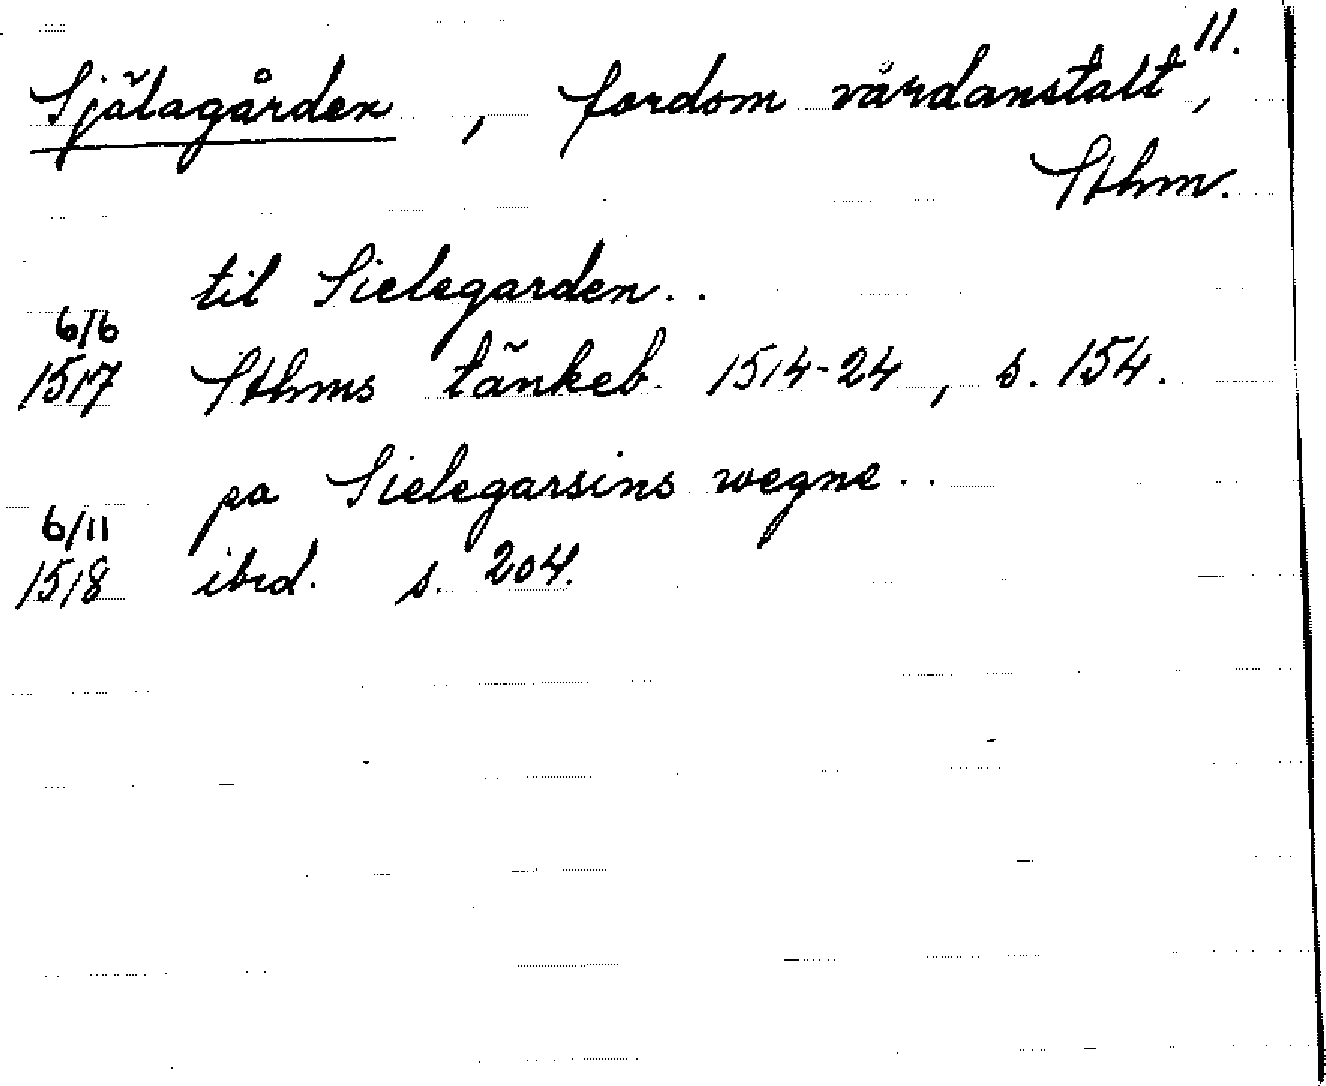 11.
Själagården, fordom vårdanstalt,
Sthm.
til Sielegarden..
6/6
1517 Sthms tänkeb. 1514-24, s. 154.
pa Sielegarsins wegne..
6/11
1518 ibid. s. 204.